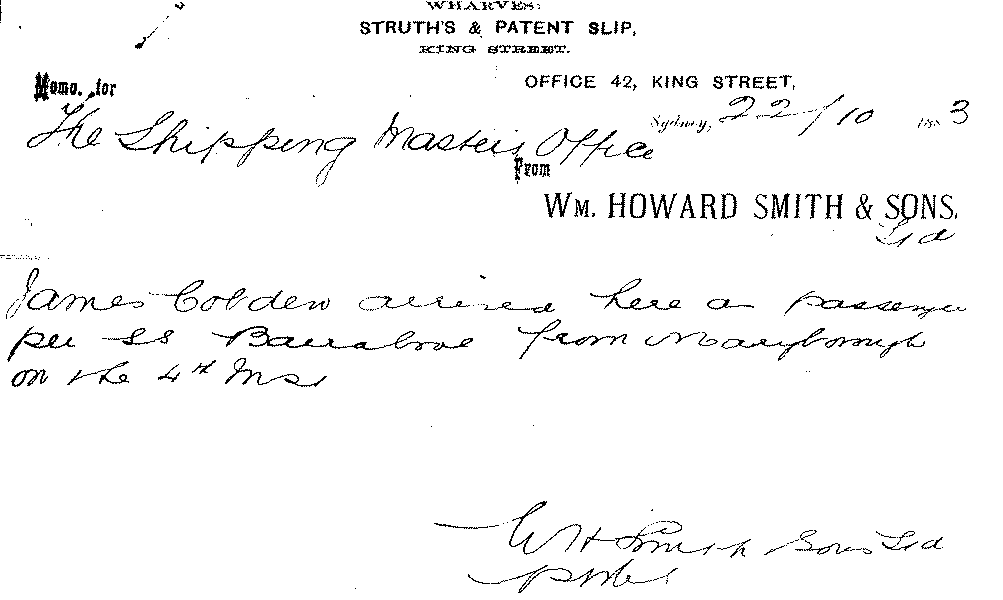 WHARVES:
STRUTH'S & PATENT SLIP,
KING STREET.
Memo. for
OFFICE 42, KING STREET,
Sydney, 22/10 1883
The Shipping Masters Office
From
WM. HOWARD SMITH & SONS.
Ltd
James Cobden arrived here a passenger
per SS Barrabool from Maryborough
on the 4th Inst
W H Smith Sons Ltd